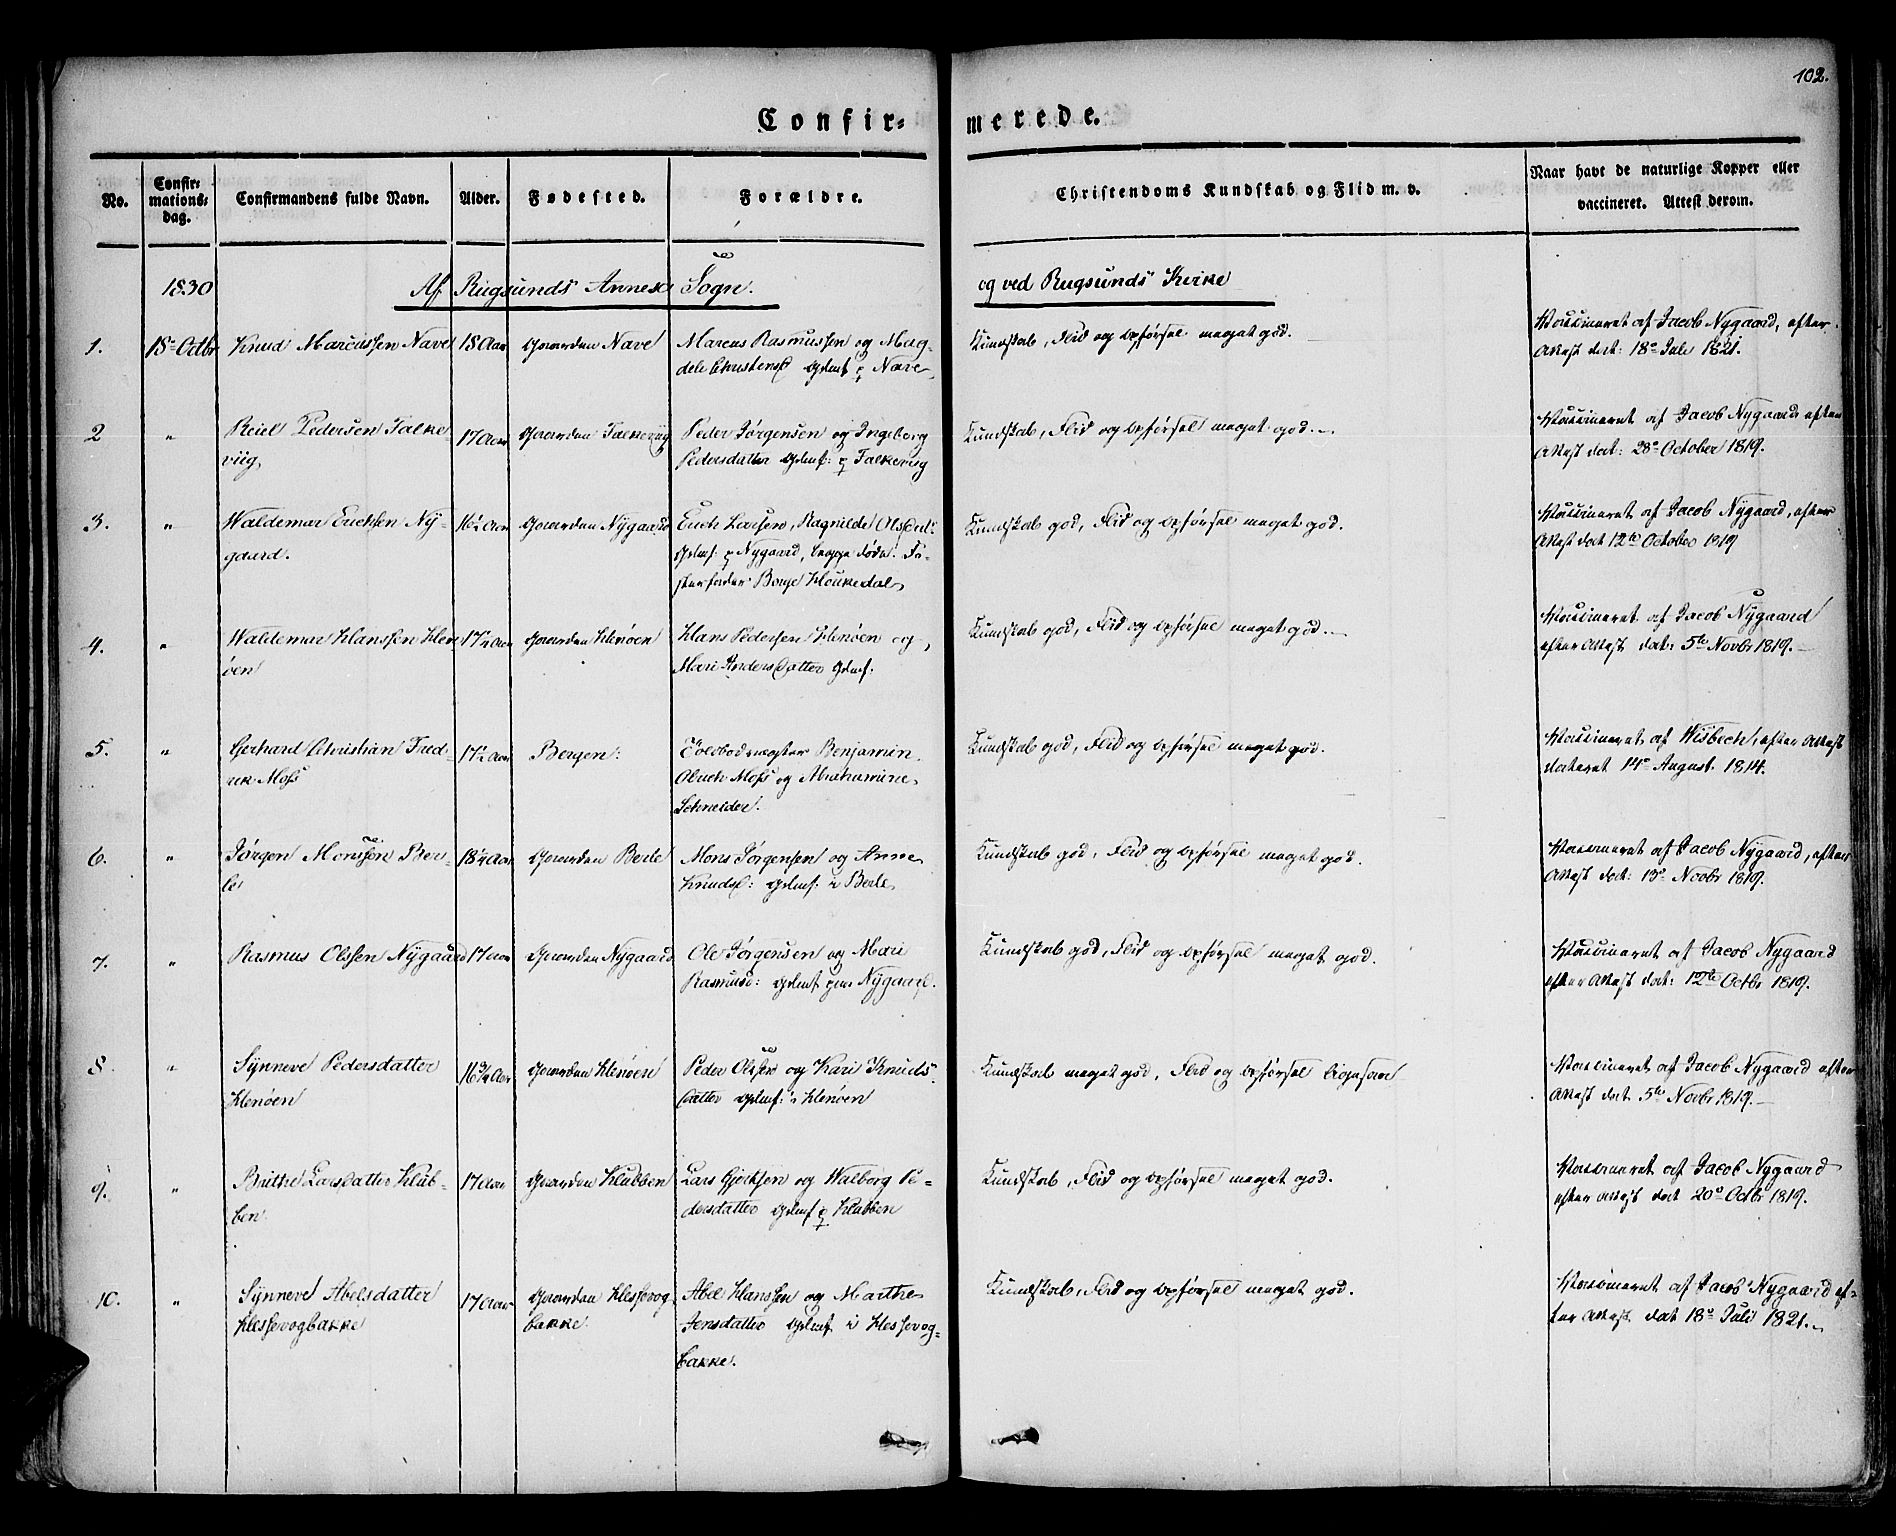 102.
Confir- merede.
No.
Confir-
mations-
dag.
Confirmandens fulde Navn.
Alder.
Fødested.
Forældre.
Christendoms Kundskab og Flid m. v.
Naar havt de naturlige Kopper eller
vaccineret. Attest derom.
1830 Af Rugsunds Annex Sogn. og ved Rugsunds Kirke
1. 18de Octbr Knud Marcussen Nave 18 Aar Gaarden Nave Marcus Rasmussen og Mag- Kundskab, Flid og Opførsel meget god. Vaccineret af Jacob Nygaard, efter
deli Christensd Gdmf p Nave Attest dat: 18de Juli 1821.
2 " Reiel Pedersen Falke- 17 Aar Gaarden Falkeviig Peder Jørgensen og Ingeborg Kundskab, Flid og Opførsel meget god. Vaccineret af Jacob Nygaard efter
viig Pedersdatter Gdmf: p Falkevig Attest dat: 28de October 1819.
3. " Waldemar Erichsen Ny- 16½ Aar Gaarden Nygaard Erich Larsen, Ragnilde Olsdatr Kundskab god, Flid og Opførsel meget god. Vaccineret af Jacob Nygaard, efter
gaard. Gdmf p Nygaard, begge døde. Fo- Attest dat 12te October 1819
sterfader Børge Houkedal
4. " Waldemar Hanssen Hen 17½ Aar Gaarden Henøen Hans Pedersen Henøen og Kundskab god, Flid og Opførsel meget god. Vaccineret af Jacob Nygaard
øen Mari Andersdatter Gdmf: efter Attest dat: 5te Novbr 1819.
5. " Gerhard Christian Fred- 17½ Aar Bergen. Toldbodvægter Benjamin Kundskab god, Flid og Opførsel meget god. Vaccineret af Wisbech, efter Attest
rik Moss Alrich Moss og Abrahamine dateret 14de August 1814.
Schneider.
6. " Jørgen Monssen Ber- 18¼ Aar Gaarden Berle Mons Jørgensen og Anne Kundskab god, Flid og Opførsel meget god. Vaccineret af Jacob Nygaard, efter
le Knudsd: Gdmf: i Berle Attest dat: 13de Novbr 1819.
7. " Rasmus Olssen Nygaard 17 Aar Gaarden Nygaard Ole Jørgensen og Mari Kundskab god, Flid og Opførsel meget god. Vaccineret af Jacob Nygaard
Rasmusd: Gdmf paa Nygaard. efter Attest dat: 12te Octbr 1819.
8. " Synneve Pedersdatter 16¾ Aar Gaarden Henøen Peder Olssen og Kari Knuds- Kundskab meget god, Flid og Opførsel ligesaa Vaccineret af Jacob Nygaard efter
Henøen datter Gdmf: i Henøen Attest dat 5te Novbr 1819.
9. " Brithe Larsdatter Klub- 17 Aar Gaarden Klubben Lars Gjertsen og Walborg Pe- Kundskab, Flid og Opførsel meget god. Vaccineret af Jacob Nygaard
ben. dersdatter Gdmf p Klubben efter Attest dat 20de Octbr 1819.
10. " Synneve Abelsdatter 17 Aar Gaarden Hessevog Abel Hanssen og Marthe Kundskab, Flid og Opførsel meget god. Vaccineret af Jacob Nygaard ef-
Hessevogbakke bakke. Jensdatter Gdmf i Hessevog- ter Attest dat 18de Juli 1821.
bakke.